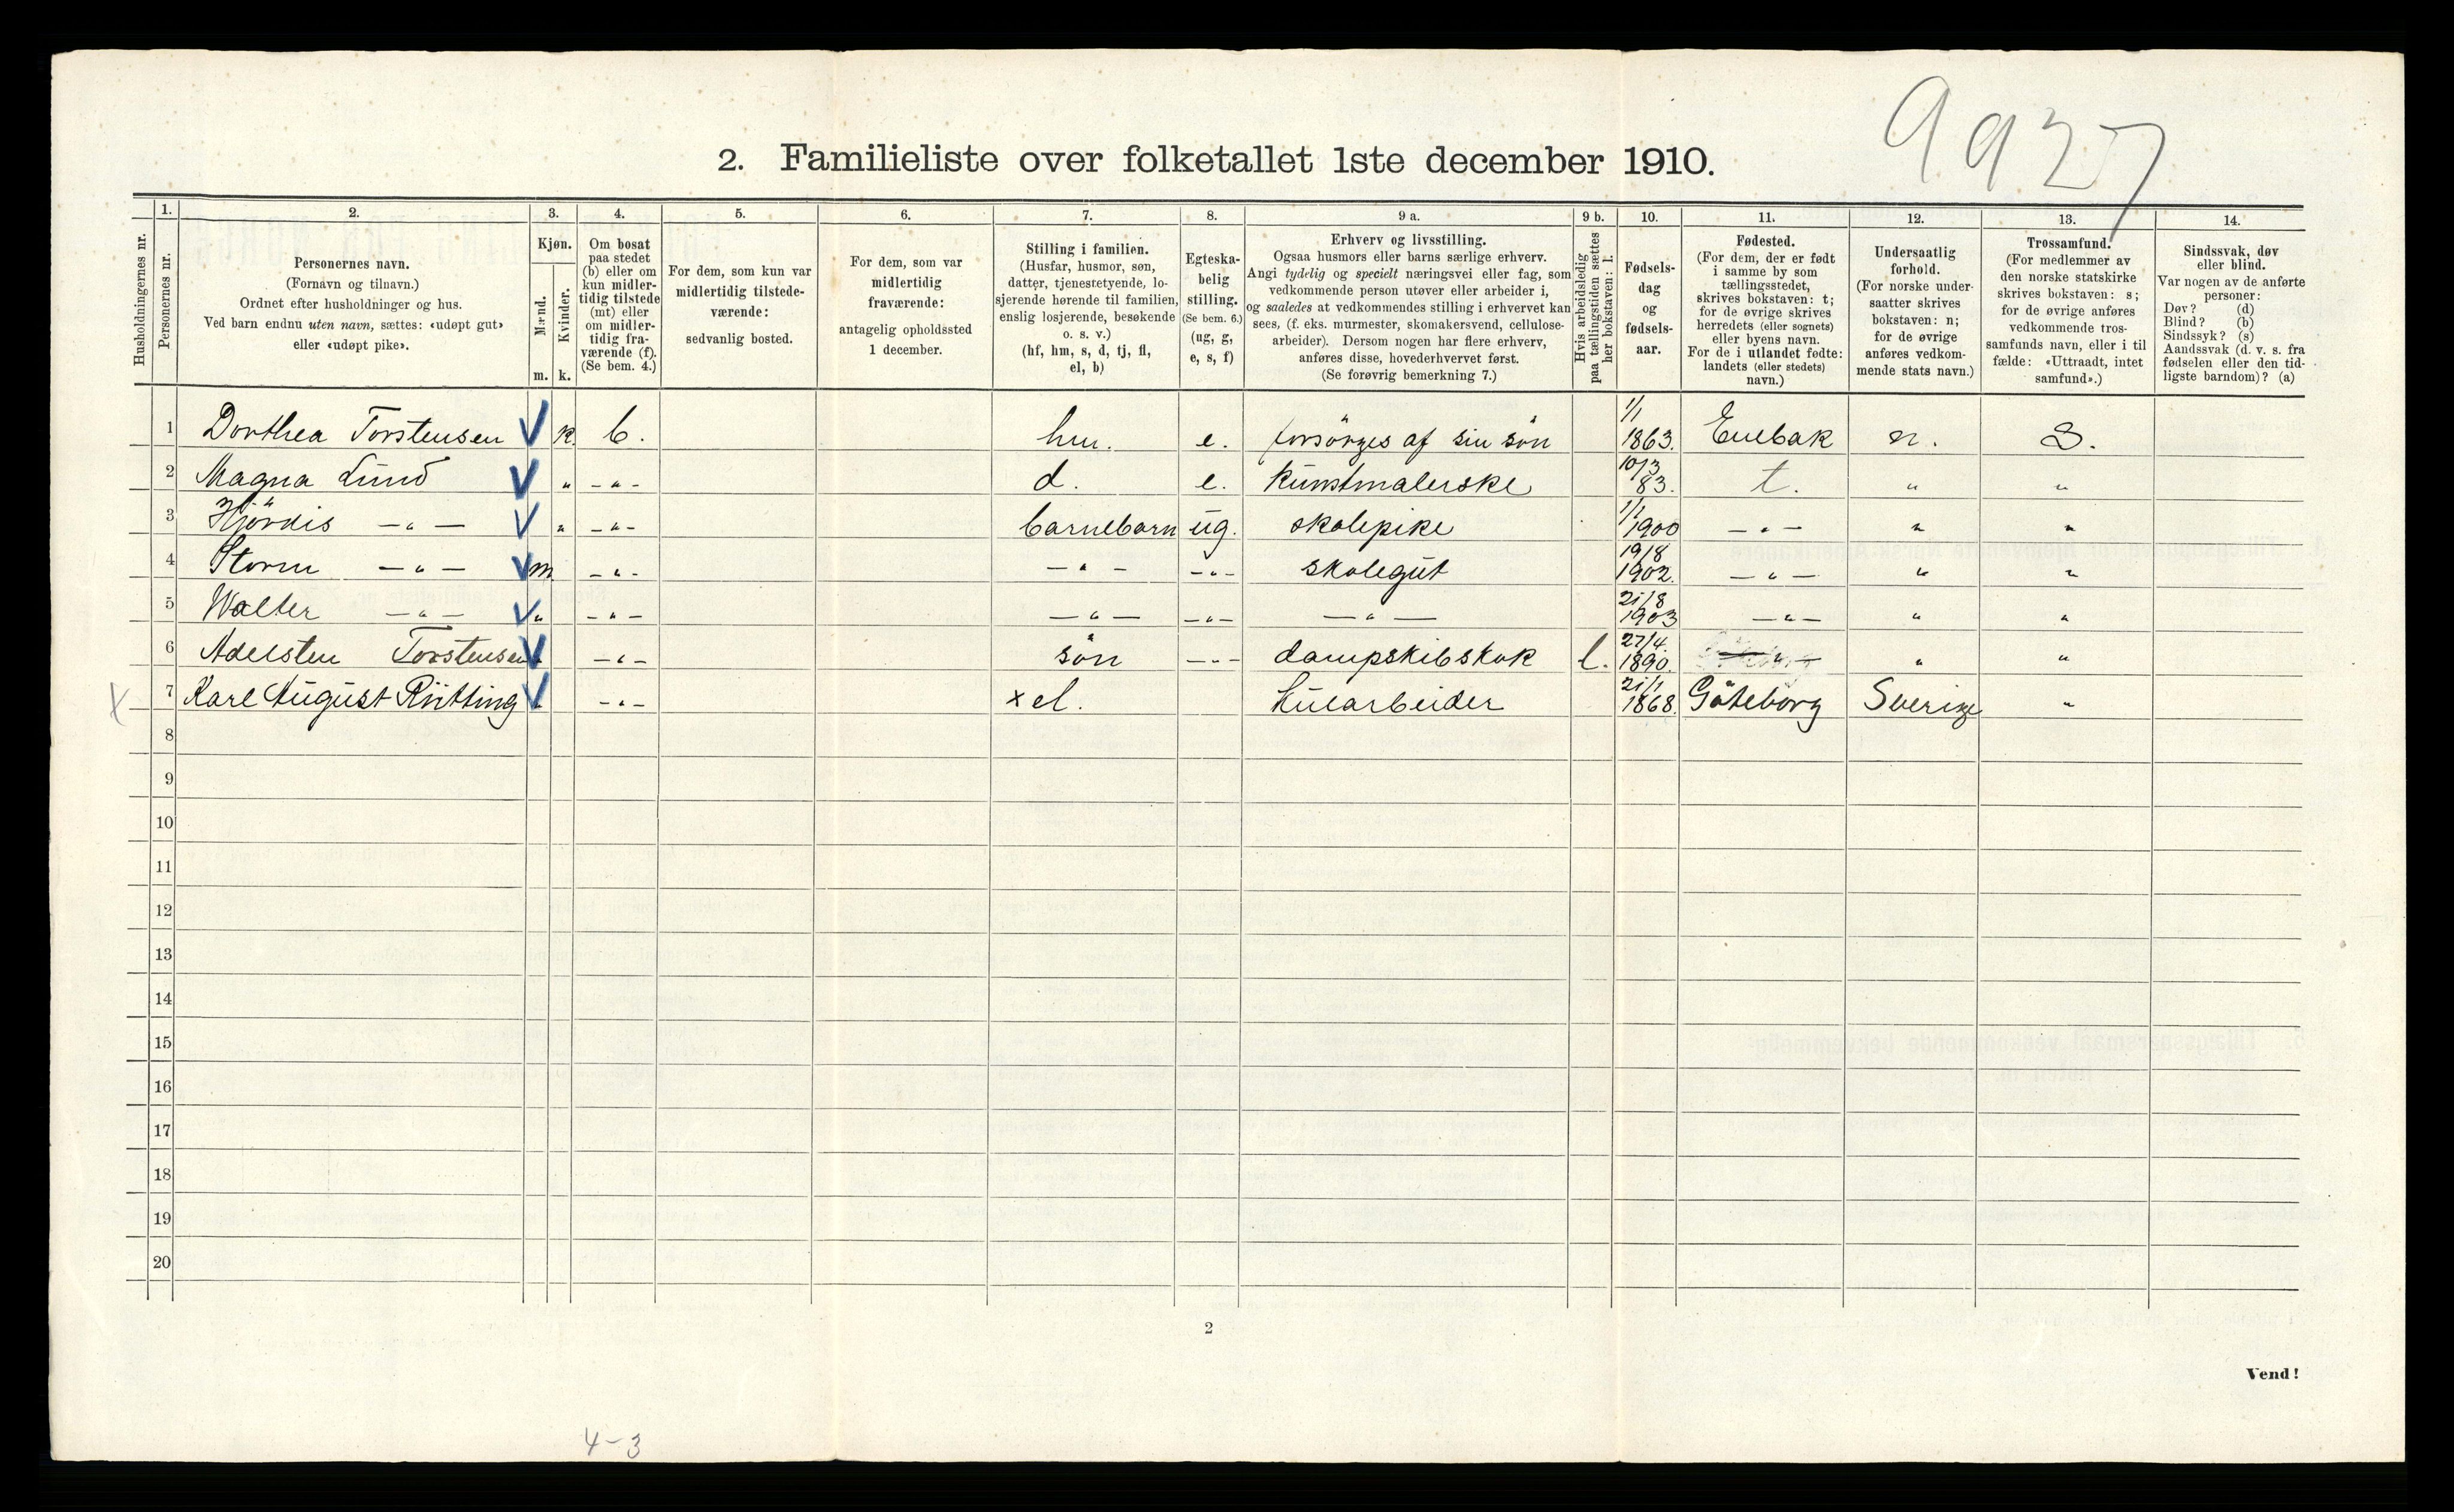 9927
2. Familieliste over folketallet 1ste december 1910.
Husholdningernes nr.
1. Personernes nr.
2. Personernes navn. (Fornavn og tilnavn.) Ordnet efter husholdninger og hus. Ved barn endnu uten navn, sættes: «udøpt gut» eller «udøpt pike».
3. Kjøn. Mænd. m. Kvinder. k.
4. Om bosat paa stedet (b) eller om kun midlertidig tilstede (mt) eller om midlertidig fraværende (f). (Se bem. 4.)
5. For dem, som kun var midlertidig tilstedeværende: sedvanlig bosted.
6. For dem, som var midlertidig fraværende: antagelig opholdssted 1 december.
7. Stilling i familien. (Husfar, husmor, søn, datter, tjenestetyende, losjerende hørende til familien, enslig losjerende, besøkende o. s. v.) (hf, hm, s, d, tj, fl, el, b)
8. Egteskabelig stilling. (Se bem. 6.) (ug, g, e, s, f)
9 a. Erhverv og livsstilling. Ogsaa husmors eller barns særlige erhverv. Angi tydelig og specielt næringsvei eller fag, som vedkommende person utøver eller arbeider i, og saaledes at vedkommendes stilling i erhvervet kan sees, (f. eks. murmester, skomakersvend, cellulosearbeider). Dersom nogen har flere erhverv, anføres disse, hovederhvervet først. (Se forøvrig bemerkning 7.)
9 b. Hvis arbeidsledig paa tællingstiden sættes her bokstaven: l.
10. Fødselsdag og fødselsaar.
11. Fødested. (For dem, der er født i samme by som tællingsstedet, skrives bokstaven: t; for de øvrige skrives herredets (eller sognets) eller byens navn. For de i utlandet fødte: landets (eller stedets) navn.)
12. Undersaatlig forhold. (For norske undersaatter skrives bokstaven: n; for de øvrige anføres vedkommende stats navn.)
13. Trossamfund. (For medlemmer av den norske statskirke skrives bokstaven: s; for de øvrige anføres vedkommende trossamfunds navn, eller i tilfælde: «Uttraadt, intet samfund».)
14. Sindssvak, døv eller blind. Var nogen av de anførte personer: Døv? (d) Blind? (b) Sindssyk? (s) Aandssvak (d. v. s. fra fødselen eller den tidligste barndom)? (a)
1 Dorthea Torstensen V k b. hm. e. forsörges af sin sön 1/1 1863. Enebak n. S.
2 Magna Lund V " -"- d. e. Kunstmalerske 10/3 83. t. " "
3 Hjördis -"- V " -"- barnebarn ug. skolepike 1/1 1900 -"- " "
4 Storm -"- V m -"- -"- -"- skolegut 19/8 1902. -"- " "
5 Walter -"- V " -"- -"- -"- -"- 21/8 1903 -"- " "
6 Adelsten Torstensen V " -"- sön -"- dampskibskok l. 27/4. 1890. -"- " "
X 7 Karl August Rütting V " -"- x el. Murarbeider 21/1 1868. Göteborg Sverige "
8
9
10
11
12
13
14
15
16
17
18
19
20
2
Vend!
4-3